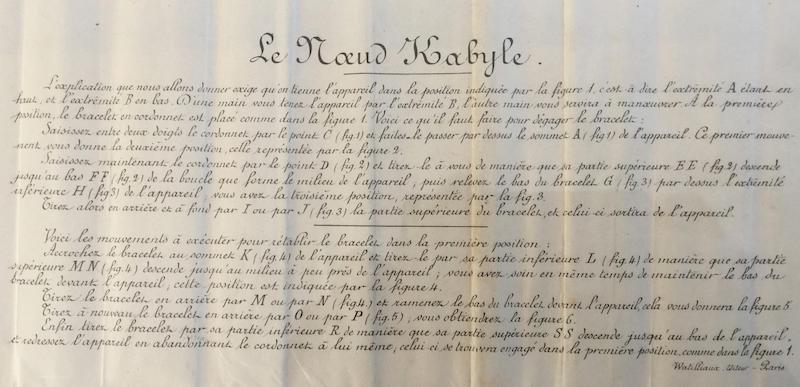 Le Nœud Kabyle.
L'explication que nous allons donner exige qu'on tienne l'appareil dans la position indiquée par la figure 1, c'est à dire l'extrémité A étant en
haut, et l'extrémité B en bas. D'une main vous tenez l'appareil par l'extrémité B, l'autre main vous servira à manœuvrer. A la première
position, le bracelet en cordonnet est placé comme dans la figure 1. Voici ce qu'il faut faire pour dégager le bracelet :
Saisissez entre deux doigts le cordonnet par le point C (fig. 1) et faites-le passer par dessus le sommet A (fig 1) de l'appareil. Ce premier mouve-
ment vous donne la deuxième position, celle représentée par la figure 2.
Saisissez maintenant le cordonnet par le point D (fig. 2) et tirez-le à vous de manière que sa partie supérieure EE (fig. 2) descende
jusqu'au bas FF (fig. 2) de la boucle que forme le milieu de l'appareil ; puis relevez le bas du bracelet G (fig. 3) par dessus l'extrémité
inférieure H (fig 3) de l'appareil ; vous avez la troisième position, représentée par la fig. 3.
Tirez alors en arrière et à fond par I ou par J (fig. 3) la partie supérieure du bracelet, et celui-ci sortira de l'appareil.
Voici les mouvements à exécuter pour rétablir le bracelet dans la première position :
Accrochez le bracelet au sommet K (fig. 4) de l'appareil et tirez-le par sa partie inférieure L (fig. 4) de manière que sa partie
supérieure MN (fig. 4) descende jusqu'au milieu à peu près de l'appareil ; vous avez soin en même temps de maintenir le bas du
bracelet devant l'appareil ; cette position est indiquée par la figure 4.
Tirez le bracelet en arrière par M ou par N (fig 4.) et ramenez le bas du bracelet devant l'appareil, cela vous donnera la figure 5
Tirez à nouveau le bracelet en arrière par O ou par P (fig. 5) ; vous obtiendrez la figure 6.
Enfin tirez le bracelet par sa partie inférieure R de manière que sa partie supérieure SS descende jusqu'au bas de l'appareil,
et redressez l'appareil en abandonnant le cordonnet à lui même, celui-ci se trouvera engagé dans la première position, comme dans la figure 1.
Watilliaux, - Paris